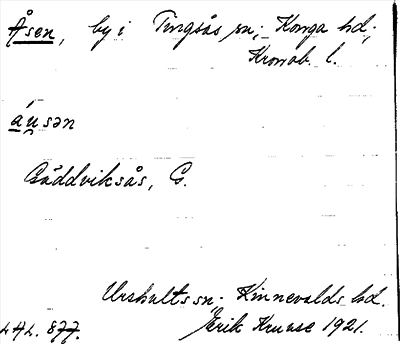 Åsen, by i Tingsås sn; Konga hd;
Kronob. l.
áu̯sən
Båddviksås, G.
Urshults sn; Kinnevalds hd.
Erik Kruuse 1921.
LAL. 877.